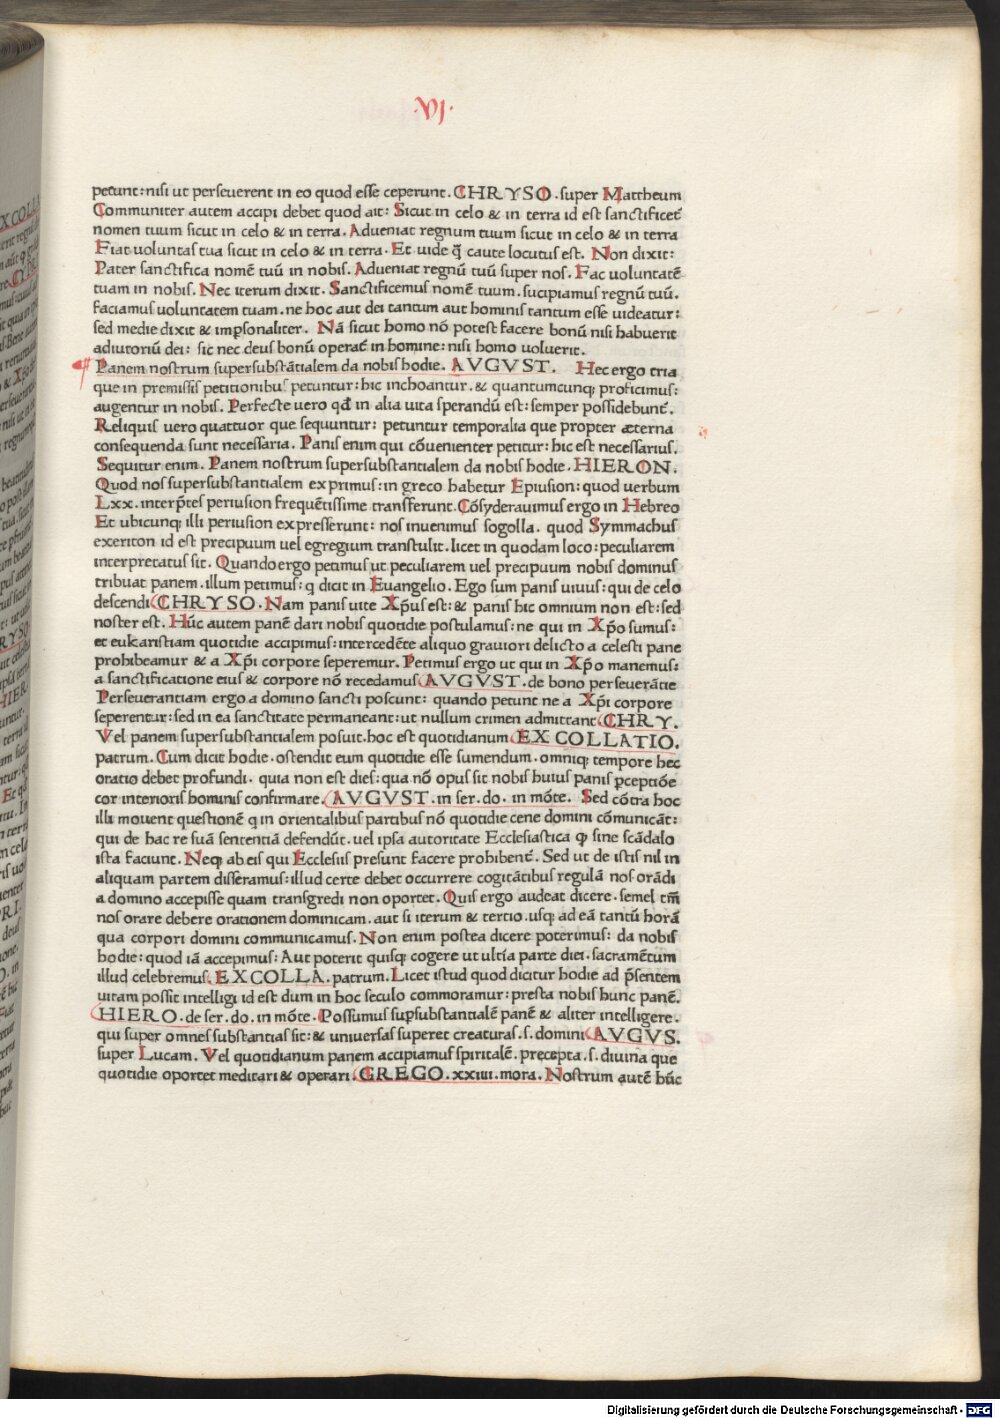 .VI.
petunt: nisi ut perseuerent in eo quod esse ceperunt. CHRYSO. super Mattheum
Communiter autem accipi debet quod ait: Sicut in celo & in terra id est sanctificet̄
nomen tuum sicut in celo & in terra. Adueniat regnum tuum sicut in celo & in terra
Fiat uoluntas tua sicut in celo & in terra. Et uide q̄ caute locutus est. Non dixit:
Pater sanctifica nomē tuū in nobis. Adueniat regnū tuū super nos. Fac uoluntatē
tuam in nobis. Nec iterum dixit. Sanctificemus nomē tuum. sucipiamus regnū tuū.
faciamus uoluntatem tuam. ne hoc aut dei tantum aut hominis tantum esse uideatur:
sed medie dixit & imꝑsonaliter. Nā sicut homo nō potest facere bonū nisi habuerit
adiutoriū dei: sic nec deus bonū operat̄ in homine: nisi homo uoluerit.
Panem nostrum supersubstātialem da nobis hodie. AVGVST. Hec ergo tria
que in premissis petitionibus petuntur: hic inchoantur. & quantumcunqꝫ proficimus:
augentur in nobis. Perfecte uero qđ in alia uita sperandū est: semper possidebunt̄.
Reliquis uero quattuor que sequuntur: petuntur temporalia que propter æterna
consequenda sunt necessaria. Panis enim qui cōuenienter petitur: hic est necessarius.
Sequitur enim. Panem nostrum supersubstantialem da nobis hodie. HIERON.
Quod nos supersubstantialem expressimus: in greco habetur Epiusion: quod uerbum
Lxx. interp̄tes periusion frequētissime transferunt. Cōsyderauimus ergo in Hebreo
Et ubicunqꝫ illi periusion expresserunt: nos inuenimus sogolla. quod Symmachus
exeriton id est precipuum uel egregium transtulit. licet in quodam loco: peculiarem
interpretatus sit. Quando ergo petimus ut peculiarem uel precipuum nobis dominus
tribuat panem. illum petimus: q dicit in Euangelio. Ego sum panis uiuus: qui de celo
descendi CHRYSO. Nam panis uite Xp̄us est: & panis hic omnium non est: sed
noster est. Hūc autem panē dari nobis quotidie postulamus: ne qui in Xp̄o sumus:
et eukaristiam quotidie accipimus: intercedēte aliquo grauiori delicto a celesti pane
prohibeamur & a Xp̄i corpore seperemur. Petimus ergo ut qui in Xp̄o manemus:
a sanctificatione eius & corpore nō recedamus AVGVST. de bono perseuerātie
Perseuerantiam ergo a domino sancti poscunt: quando petunt ne a Xp̄i corpore
seperentur: sed in ea sanctitate permaneant: ut nullum crimen admittant CHRY.
Vel panem supersubstantialem posuit. hoc est quotidianum EX COLLATIO.
patrum. Cum dicit hodie. ostendit eum quotidie esse sumendum. omniqꝫ tempore hec
oratio debet profundi. quia non est dies: qua nō opus sit nobis huius panis ꝑceptiōe
cor interioris hominis confirmare. AVGVST. in ser. do. in mōte. Sed cōtra hoc
illi mouent questionē q in orientalibus partibus nō quotidie cene domini cōmunicāt:
qui de hac re suā sententiā defendūt. uel ipsa autoritate Ecclesiastica ꝙ sine scādalo
ista faciunt. Neqꝫ ab eis qui Ecclesiis presunt facere prohibent̄. Sed ut de istis nil in
aliquam partem disseramus: illud certe debet occurrere cogitātibus regulā nos orādi
a domino accepisse quam transgredi non oportet. Quis ergo audeat dicere. semel tm̄
nos orare debere orationem dominicam. aut si iterum & tertio. usqꝫ ad eā tantū horā
qua corpori domini communicamus. Non enim postea dicere poterimus: da nobis
hodie: quod iā accepimus: Aut poterit quisqꝫ cogere ut ultīa parte diei. sacramētum
illud celebremus. EX COLLA. patrum. Licet istud quod dicitur hodie ad p̄sentem
uitam possit intelligi id est dum in hoc seculo commoramur: presta nobis hunc panē.
HIERO. de ser. do. in mōte. Possumus suꝑsubstantialē panē & aliter intelligere.
qui super omnes substantias sit: & uniuersas superet creaturas. s. domini AVGVS.
super Lucam. Vel quotidianum panem accipiamus spiritalē. precepta. s. diuina que
quotidie oportet meditari & operari. GREGO. xxiiii. mora. Nostrum autē hūc
Digitalisierung gefördert durch die Deutsche Forschungsgemeinschaft - DFG